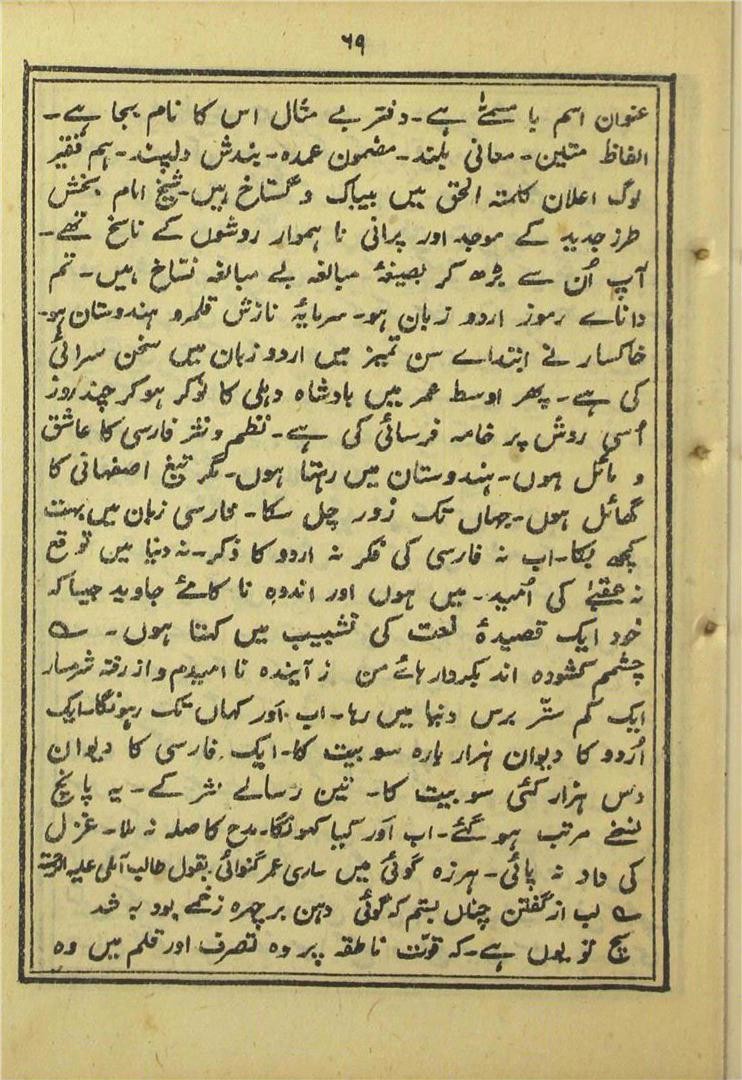 ۶۹
عنوان اسم با مسمٰے ہے۔ دفتر بے مثال اس کا نام بجا ہے۔
الفاظ متین۔ معانی بلند۔ مضمون عمدہ۔ بندش دلپسند۔ ہم فقیر
لوگ اعلان کلمتہ الحق میں بیباک و گستاخ ہیں۔ شیخ امام بخش
طرز جدید کے موجد اور پرانی نا ہموار روشوں کے ناسخ تھے۔
آپ اُن سے بڑھ کر بصیغۂ مبالغہ بے مبالغہ نسّاخ ہیں۔ تم
داناے رموز اردو زبان ہو۔ سرمایۂ نازش قلمرو ہندوستان ہو۔
خاکسار نے ابتداے سن تمیز میں اردو زبان میں سخن سرائی
کی ہے۔ پھر اوسط عمر میں بادشاہ دہلی کا نوکر ہو کر چند روز
اُسی روش پر خامہ فرسائی کی ہے۔ نظم و نثر فارسی کا عاشق
و مائل ہوں۔ ہندوستان میں رہتا ہوں۔ مگر تیغ اصفہانی کا
گھائل ہوں۔ جہاں تک زور چل سکا۔ فارسی زبان میں بہت
کچھ بکا۔ اب نہ فارسی کی فکر نہ اردو کا ذکر۔ نہ دنیا میں توقع
نہ عقبےٰ کی اُمید۔ میں ہوں اور اندوہ نا کامئے جاوید جیسا کہ
خود ایک قصیدۂ نعت کی تشبیب میں کہتا ہوں۔ ؎
چشمم کشودہ اند بکردار ہائے من ز آیندہ نا امیدم و از رفتہ شرمسار
ایک کم ستّر برس دنیا میں رہا۔ اب اَور کہاں تک رہونگا۔ ایک
اُردو کا دیوان ہزار بارہ سو بیت کا۔ ایک فارسی کا دیوان
دس ہزار کئی سو بیت کا۔ تین رسالے نثر کے۔ یہ پانچ
نسخے مرتب ہو گئے۔ اب اَور کیا کہونگا۔ مدح کا صلہ نہ ملا۔ غزل
کی داد نہ پائی۔ ہرزہ گوئی میں ساری عمر گنوائی بقول طالب آملی علیہ الرحمتہ
؎ لب از گفتن چناں بستم کہ گوئی دہن بر چہرہ زخمے بود بہ شد
سچ تو یوں ہے۔ کہ قوّت ناطقہ پر وہ تصرف اور قلم میں وہ